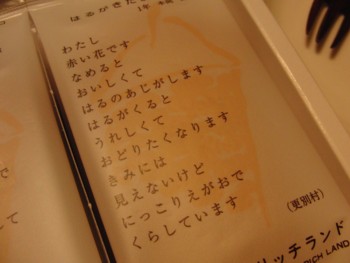 はるがきた
1年
わたし
赤い花です
なめると
おいしくて
はるのあじがします
はるがくると
うれしくて
おどりたくなります
きみには
見えないけど
にっこりえがおで
くらしています
(更別村)
リッチランド
RICH LAND